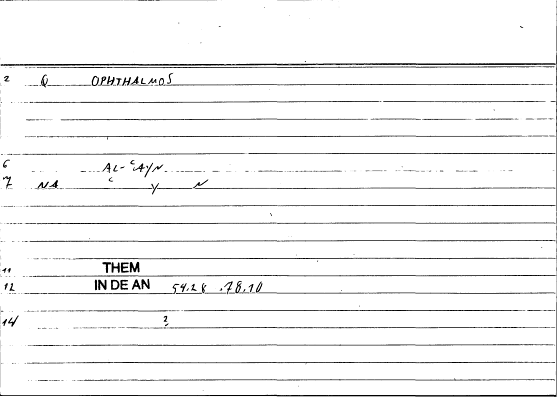 2 Q OPHTHALMOS
6 AL-ʿAYN
7 NA ʿ Y N
11 THEM
12 IN DE AN 54.28 .78.10
14/ 2